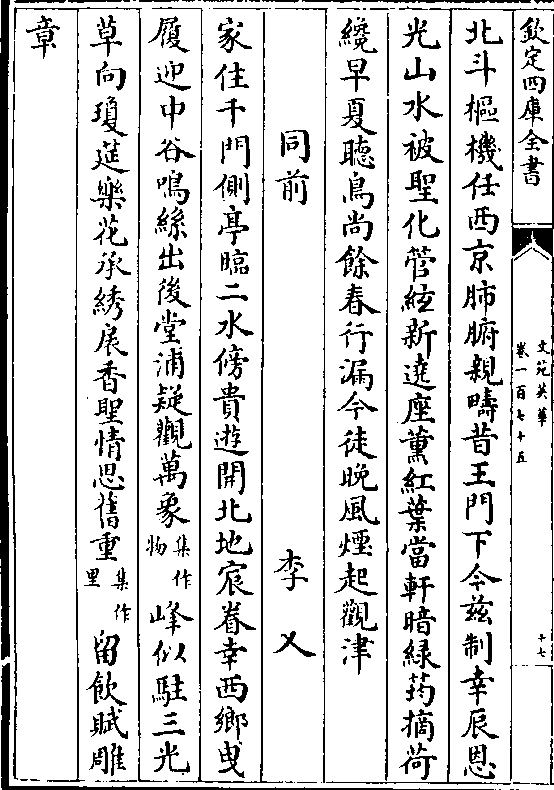 欽定四庫全書
文苑英華
卷一百七十五
十七
北斗樞機任西京肺腑親疇昔王門下今茲制幸辰恩
光山水被聖化管絃新遶座薰紅葉當軒暗緑筠摘荷
纔早夏聽鳥尚餘春行漏今徒晩風煙起觀津
同前 李乂
家住千門側亭臨二水傍貴遊開北地宸眷幸西鄉曳
履迎中谷鳴絲出後堂浦疑觀萬象集作物峰似駐三光
草向瓊筵樂花承綉扆香聖情思舊重集作里留飲賦雕
章